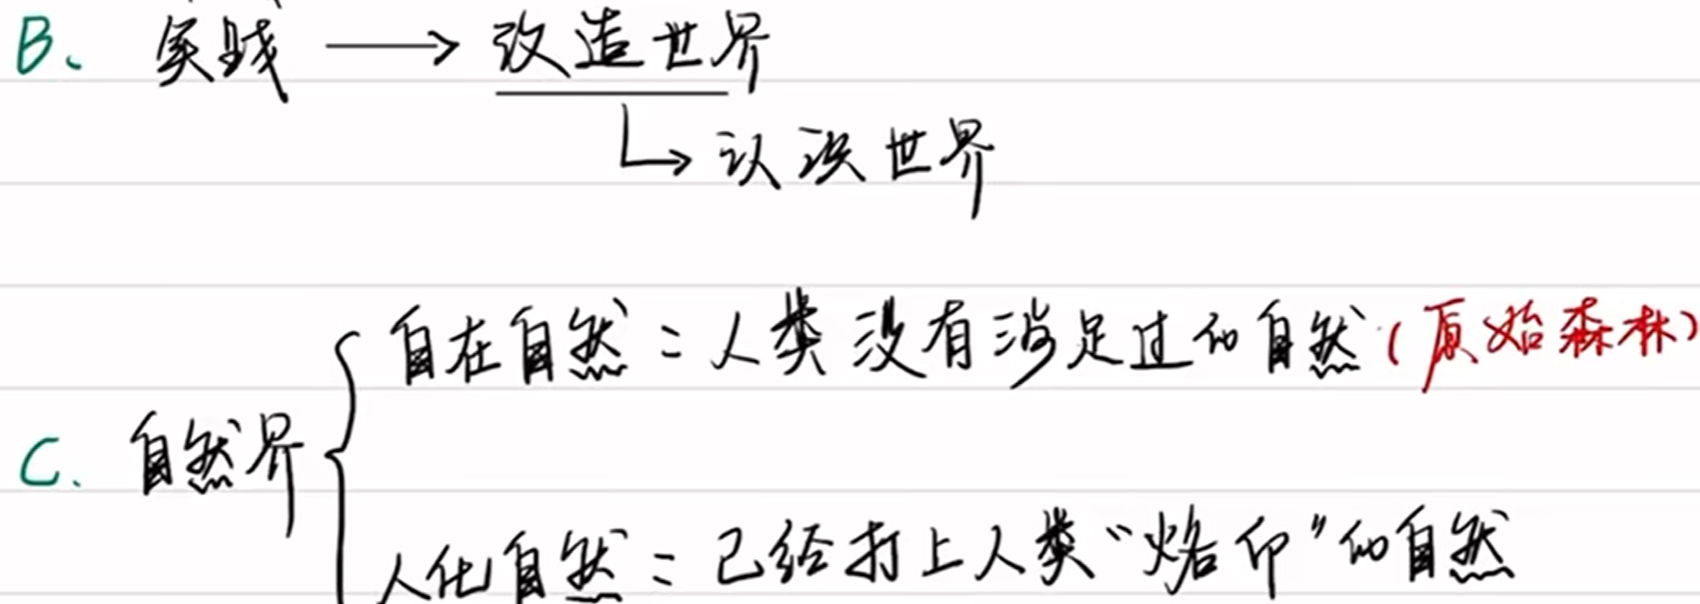 B、实践 → 改造世界
↳ 认识世界
自在自然：人类没有涉足过的自然（原始森林）
C. 自然界
人化自然：已经打上人类“烙印”的自然